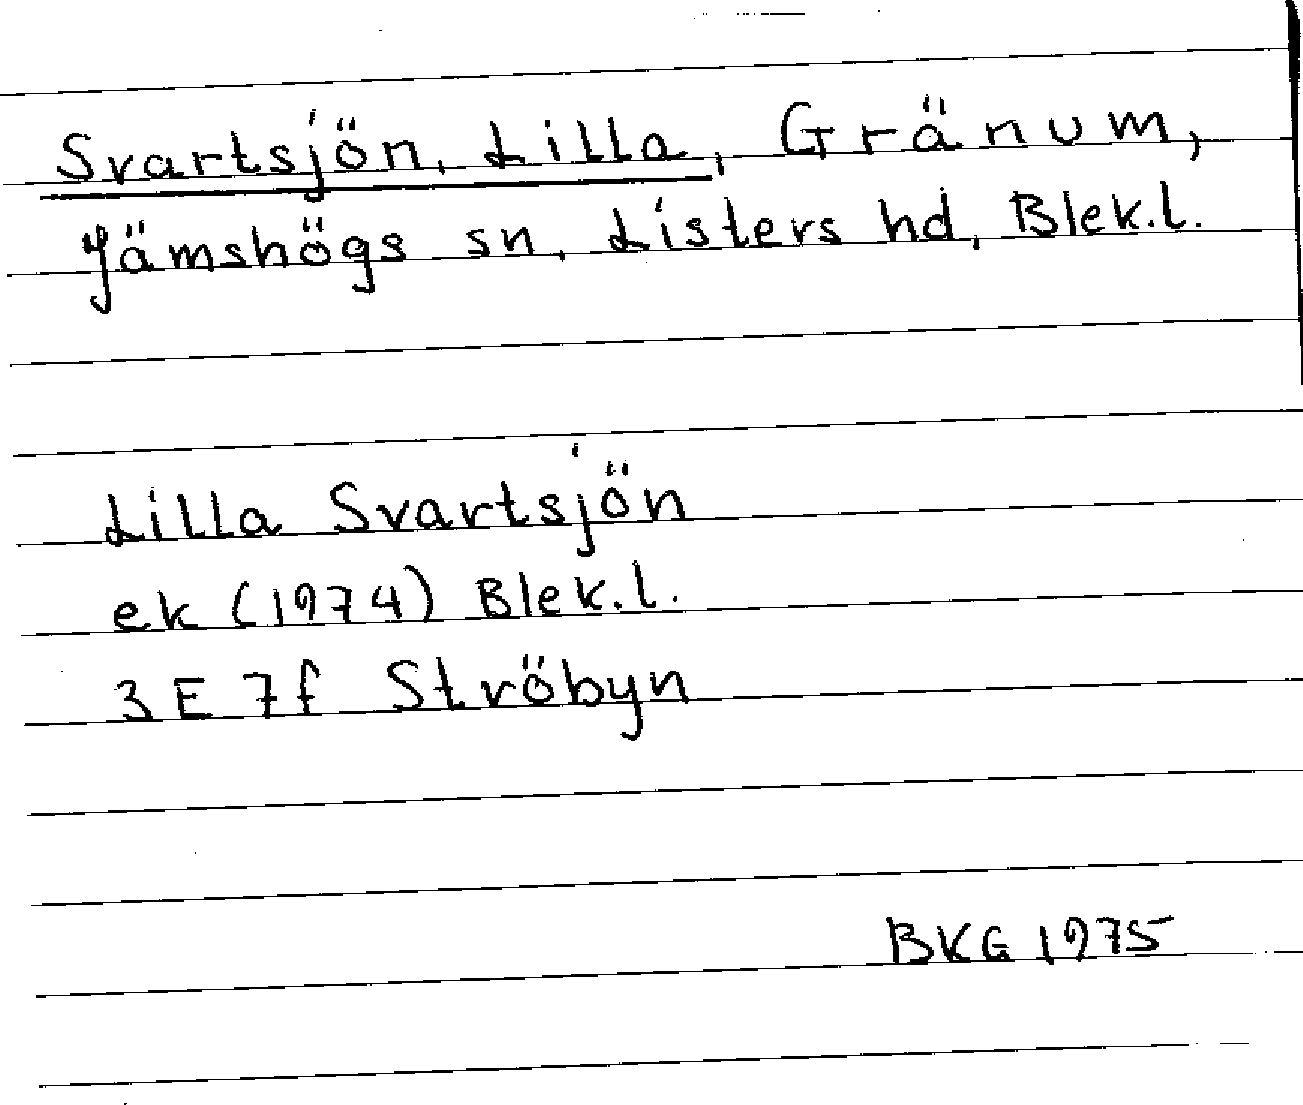 Svartsjön, Lilla, Gränum,
Jämshögs sn, Listers hd, Blek.l.
Lilla Svartsjön
ek (1974) Blek.l.
3 E 7f Ströbyn
BKG 1975